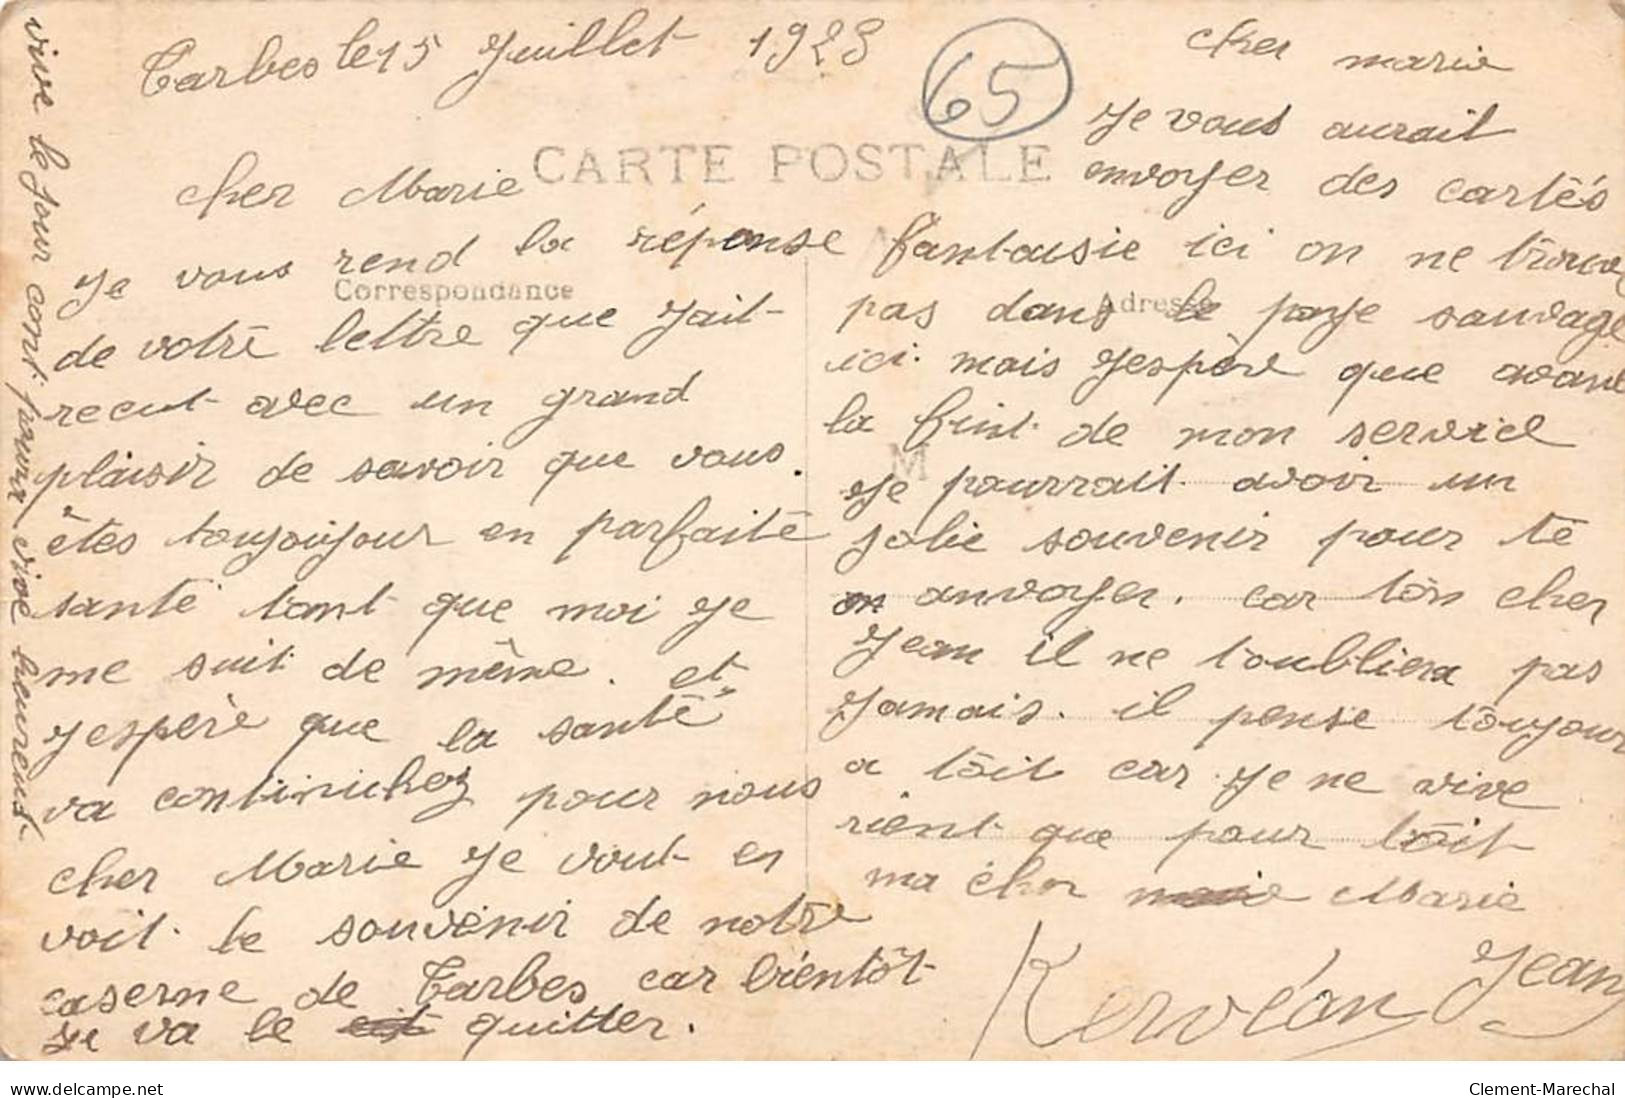 Tarbes le 15 Juillet 1928
65
CARTE POSTALE
Correspondance
Adresse
M
cher Marie
Je vous rend la réponse
de votre lettre que Jait
recut avec un grand
plaisir de savoir que vous.
êtes toujoujour en parfaite
santé tant que moi Je
me suit de même. et
Jespère que la santé
va continichez pour nous
cher Marie Je vout en
voit le souvenir de notre
caserne de Tarbes car bientôt
Je va le quitter.
vive le Jour cont pourra vive heureus
cher marie
Je vous aurait
envoyer des cartes
fantaisie ici on ne trouve
pas dans le paye sauvage
ici. mais Jespère que avant
la fint de mon service
Je pourrait avoir un
Jolie souvenir pour te
anvoyer. car ton cher
Jean il ne toubliera pas
Jamais. il pense toujour
a toit car Je ne vive
rient que pour toit
ma cher Marie
Jean
Kervéan
delcampe.net
Clement-Marechal